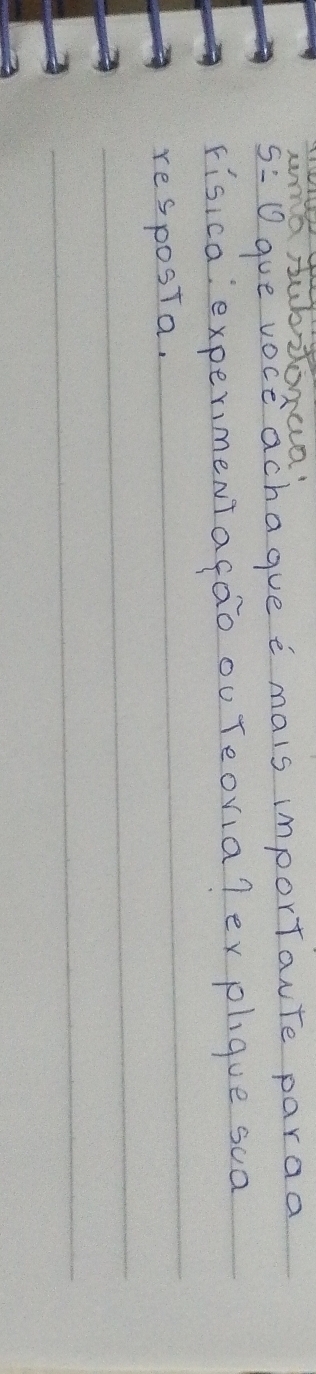 uma substância.
5- O que você acha que é mais importante para a
física: experimentação ou teoria? explique sua
resposta.